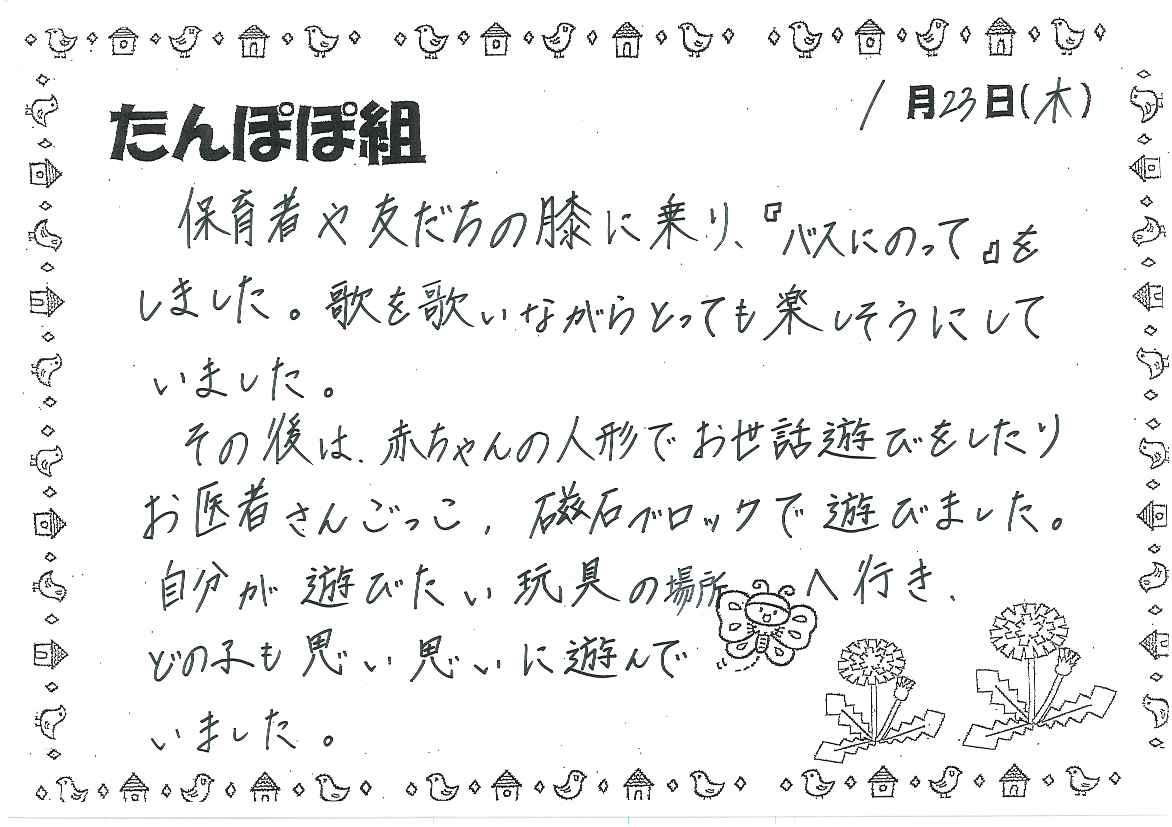 1月23日(木)
たんぽぽ組
保育者や友だちの膝に乗り、『バスにのって』を
しました。歌を歌いながらとっても楽しそうにして
いました。
その後は、赤ちゃんの人形でお世話遊びをしたり
お医者さんごっこ、磁石ブロックで遊びました。
自分が遊びたい玩具の場所へ行き、
どの子も思い思いに遊んで
いました。